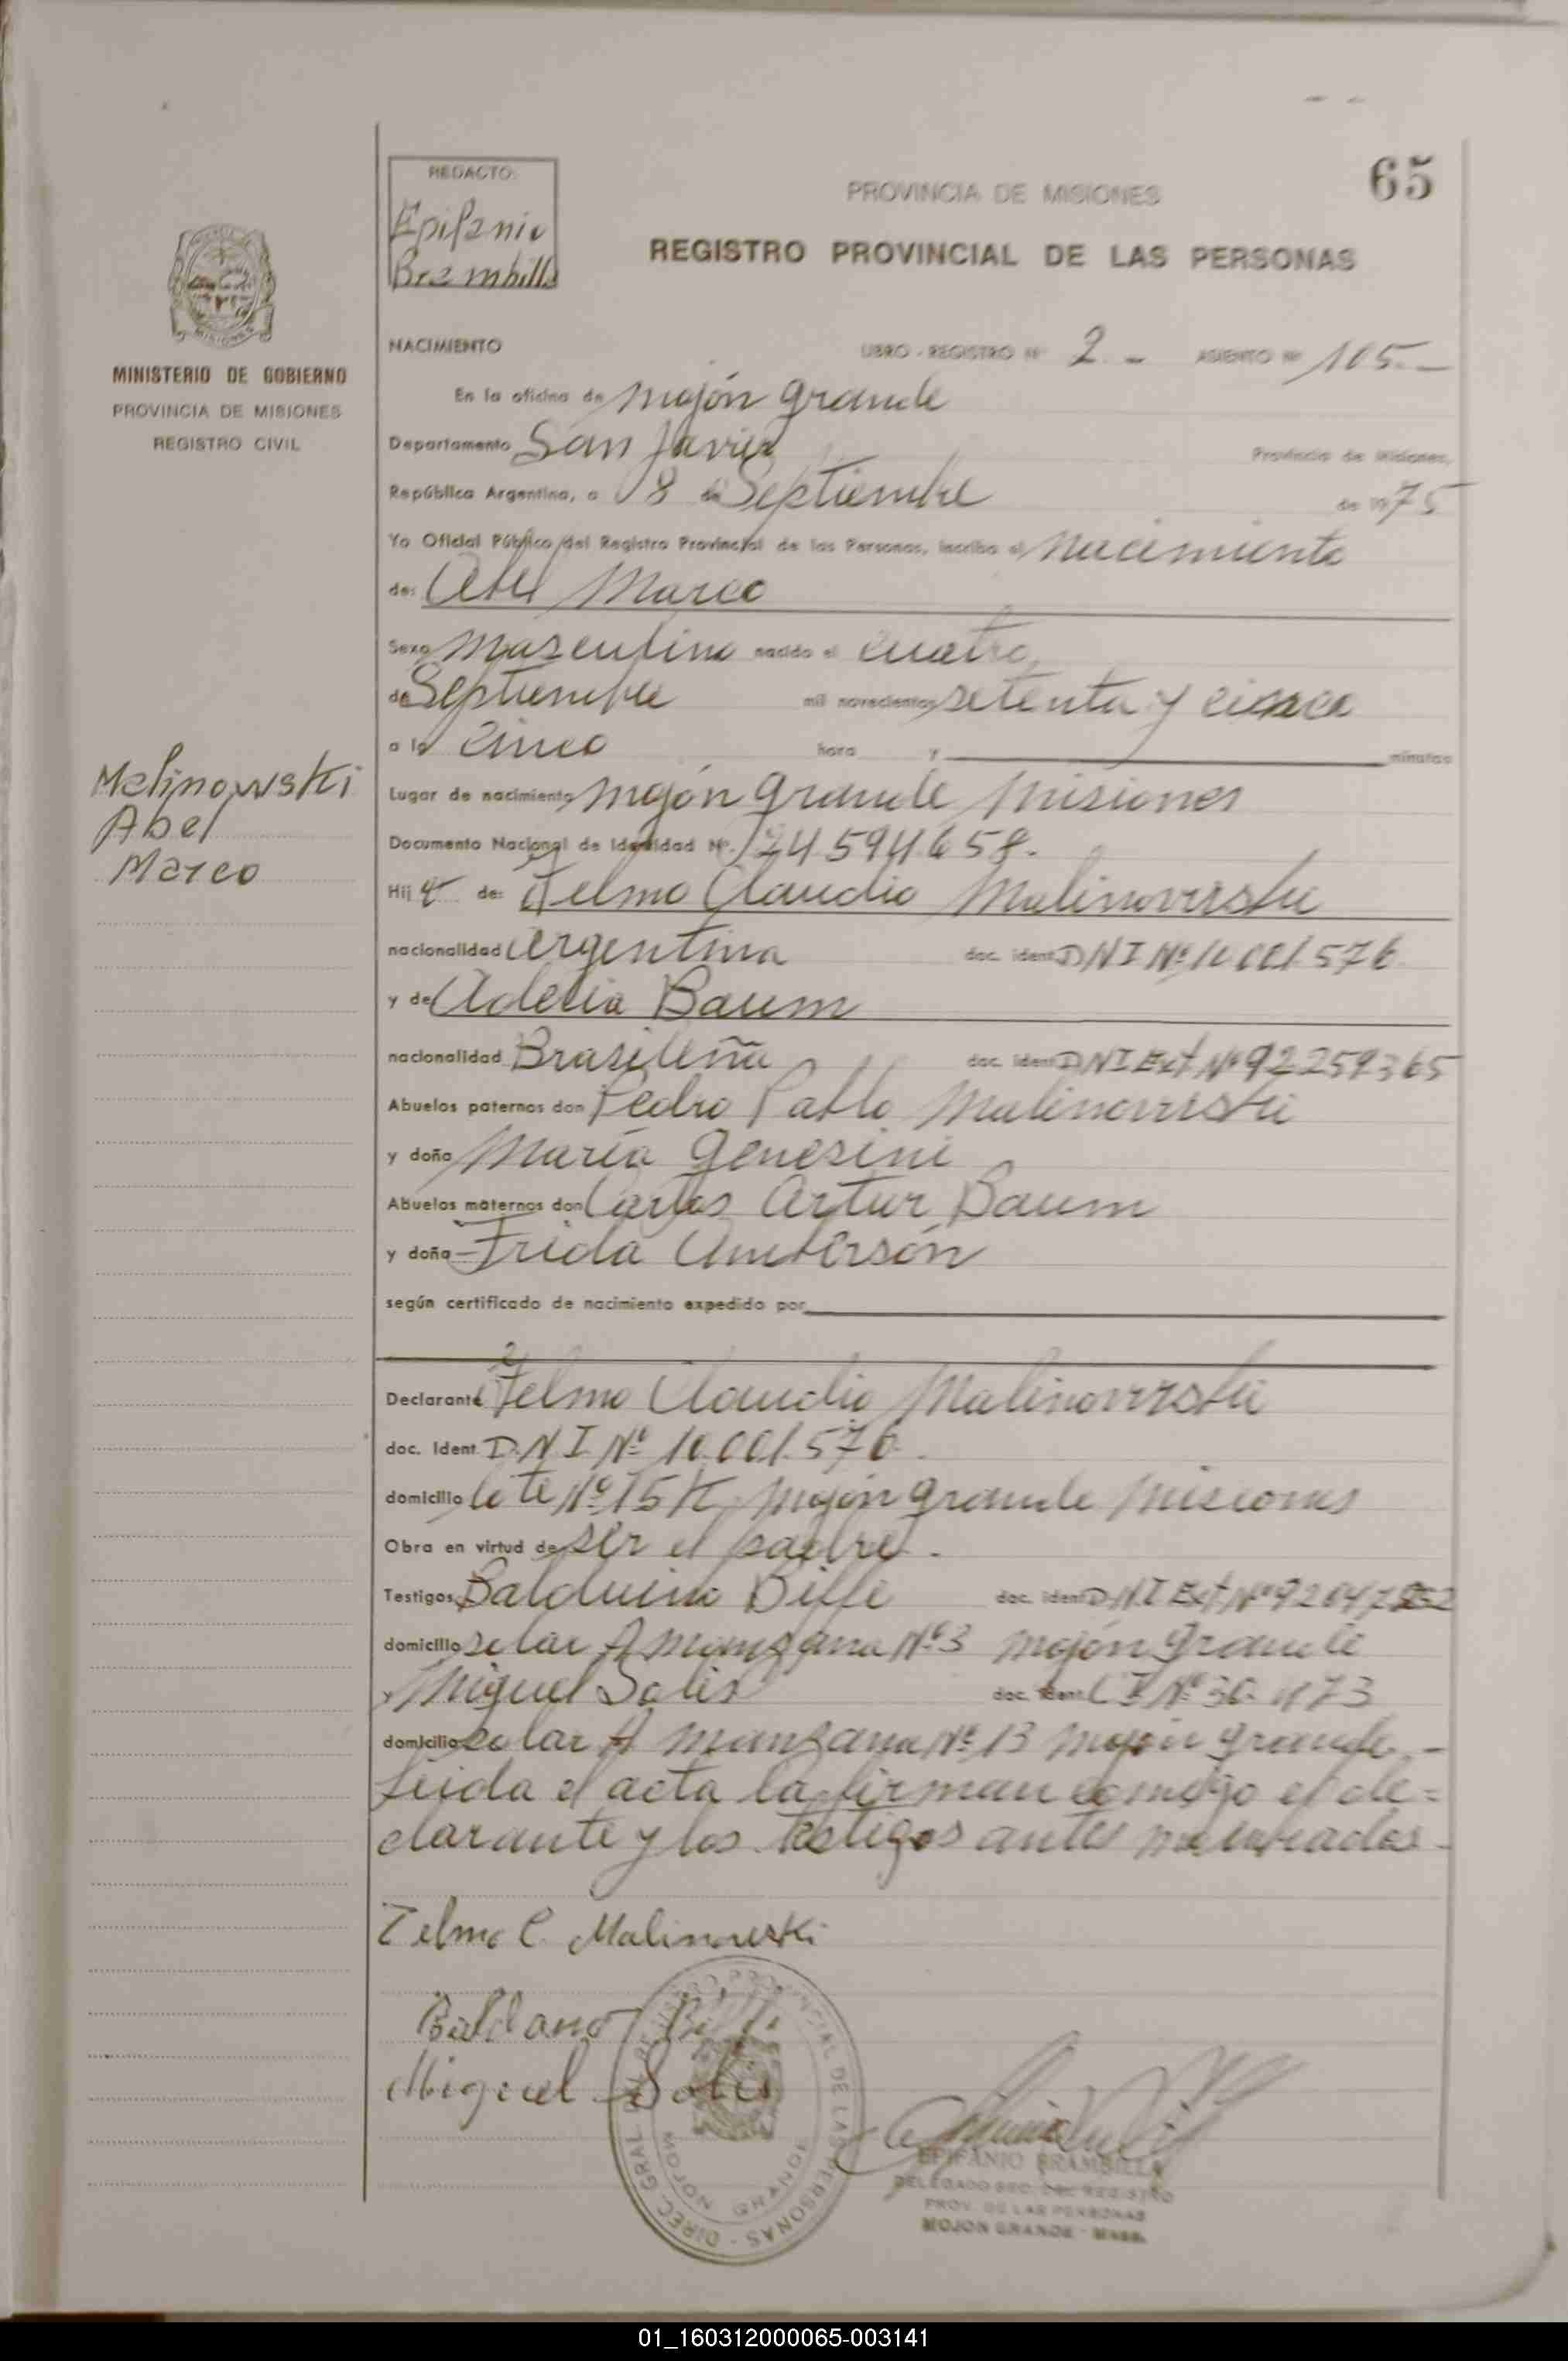 65
REDACTO:
Epifanio
Brambilla
PROVINCIA DE MISIONES
REGISTRO PROVINCIAL DE LAS PERSONAS
MISIONES
MINISTERIO DE GOBIERNO
PROVINCIA DE MISIONES
REGISTRO CIVIL
NACIMIENTO LIBRO - REGISTRO Nº 2.- ASIENTO Nº 105.-
En la oficina de Mojón Grande
Departamento San Javier Provincia de Misiones,
República Argentina, a 8 de Septiembre de 1975
Yo Oficial Público del Registro Provincial de las Personas, inscribo el Nacimiento
de: Abel Marco
Sexo Masculino nacido el cuatro
de Septiembre mil novecientos setenta y cinco
a la cinco hora y minutos
Malinowski
Abel
Marco
Lugar de nacimiento Mojón Grande Misiones
Documento Nacional de Identidad Nº. 24594658.
Hijo de: Telmo Claudio Malinowski
nacionalidad Argentina doc. ident. DNI Nº 10.001.576
y de Adelia Baum
nacionalidad Brasileña doc. ident. DNI Ext Nº 92259365
Abuelos paternos don Pedro Pablo Malinowski
y doña María Genesini
Abuelos maternos don Carlos Artur Baum
y doña Frida Ambersón
según certificado de nacimiento expedido por
Declarante Telmo Claudio Malinowski
doc. Ident. D.N I Nº 10.001.576.
domicilio lote Nº 15 K Mojón Grande Misiones
Obra en virtud de ser el padre.
Testigos Balduino Biffi doc. ident. DNI Ext Nº
domicilio solar A Manzana Nº 3 Mojón Grande
y Miguel Solis doc. ident. C I Nº
domicilio solar A manzana Nº 13 Mojón Grande.-
Leida el acta la firman conmigo el de=
clarante y los testigos antes nombrados.
Telmo C. Malinowski
Miguel Solis
DIREC. GRAL. DEL REGISTRO PROVINCIAL DE LAS PERSONAS -
MOJON GRANDE
EPIFANIO BRAMBILLA
DELEGADO SEC. DEL REGISTRO
PROV. DE LAS PERSONAS
MOJON GRANDE - Mnes.
01_160312000065-003141